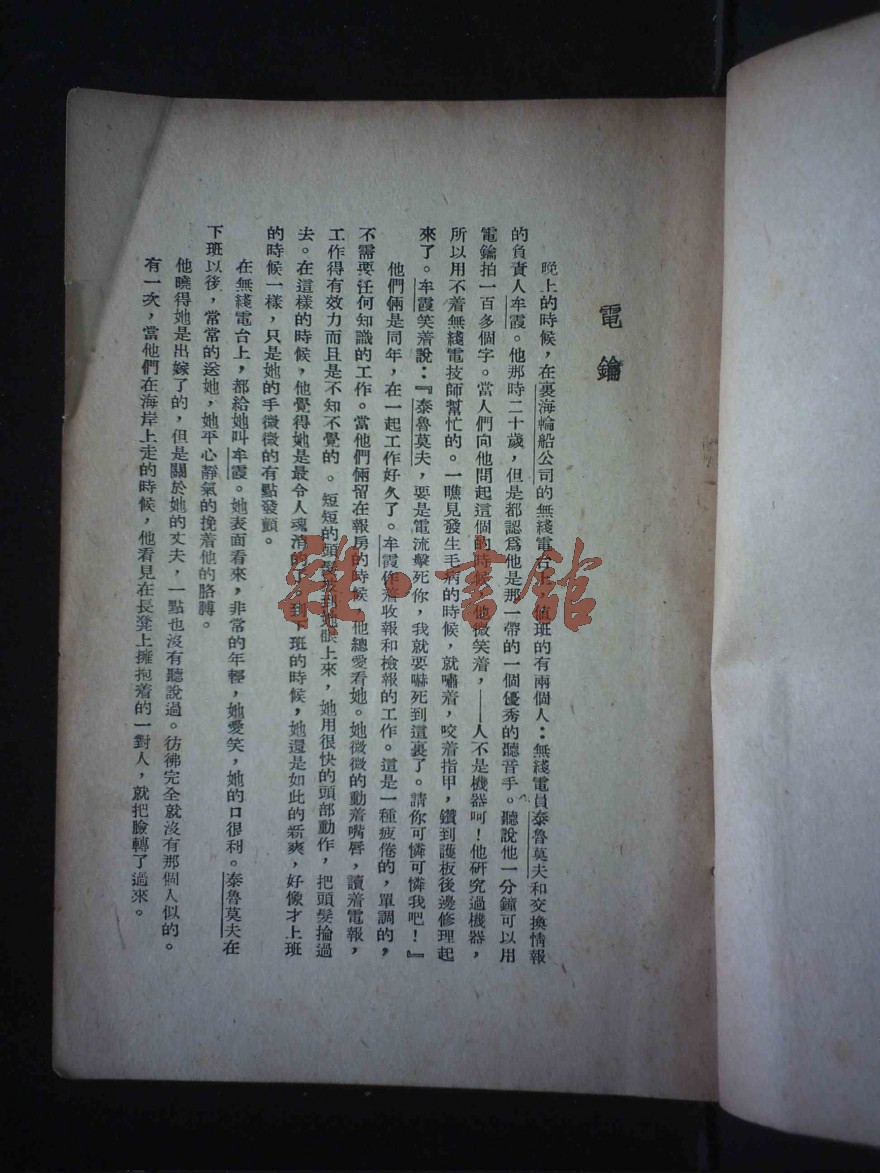 電鑰
晚上的時候，在裏海輪船公司的無綫電台上，值班的有兩個人：無綫電員泰魯莫夫和交換情報
的負責人牟霞。他那時二十歲，但是都認爲他是那一帶的一個優秀的聽音手。聽說他一分鐘可以用
電鑰拍一百多個字。當人們向他問起這個的時候，他微笑着，——人不是機器呵！他研究過機器，
所以用不着無綫電技師幫忙的。一瞧見發生毛病的時候，就嘯着，咬着指甲，鑽到護板後邊修理起
來了。牟霞笑着說：『泰魯莫夫，要是電流擊死你，我就要嚇死到這裏了。請你可憐可憐我吧！』
他們倆是同年，在一起工作好久了。牟霞作着收報和檢報的工作。這是一種疲倦的，單調的，
不需要任何知識的工作。當他們倆留在報房的時候，他總愛看她。她微微的動着嘴唇，讀着電報，
工作得有效力而且是不知不覺的。短短的頭髮披到她眼上來，她用很快的頭部動作，把頭髮掄過
去。在這樣的時候，他覺得她是最令人魂消的了。到下班的時候，她還是如此的新爽，好像才上班
的時候一樣，只是她的手微微的有點發顫。
在無綫電台上，都給她叫牟霞。她表面看來，非常的年輕，她愛笑，她的口很利。泰魯莫夫在
下班以後，常常的送她，她平心靜氣的挽着他的胳膊。
他曉得她是出嫁了的，但是關於她的丈夫，一點也沒有聽說過。彷彿完全就沒有那個人似的。
有一次，當他們在海岸上走的時候，他看見在長凳上擁抱着的一對人，就把臉轉了過來。
雜·書館